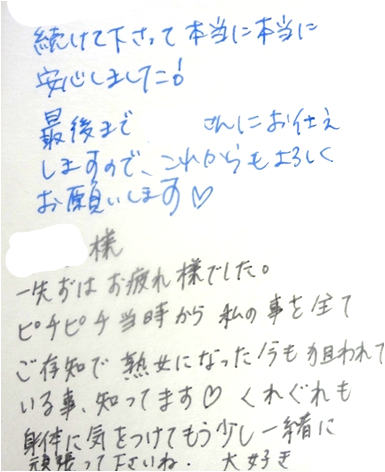 続けて下さって本当に本当に
安心しました!
最後まで さんにお仕え
しますので、これからもよろしく
お願いします♡
様
一先ずはお疲れ様でした。
ピチピチ当時から私の事を全て
ご存知で熟女になった今も狙われて
いる事、知ってます♡くれぐれも
身体に気をつけてもう少し一緒に
頑張って下さいね. 大好き